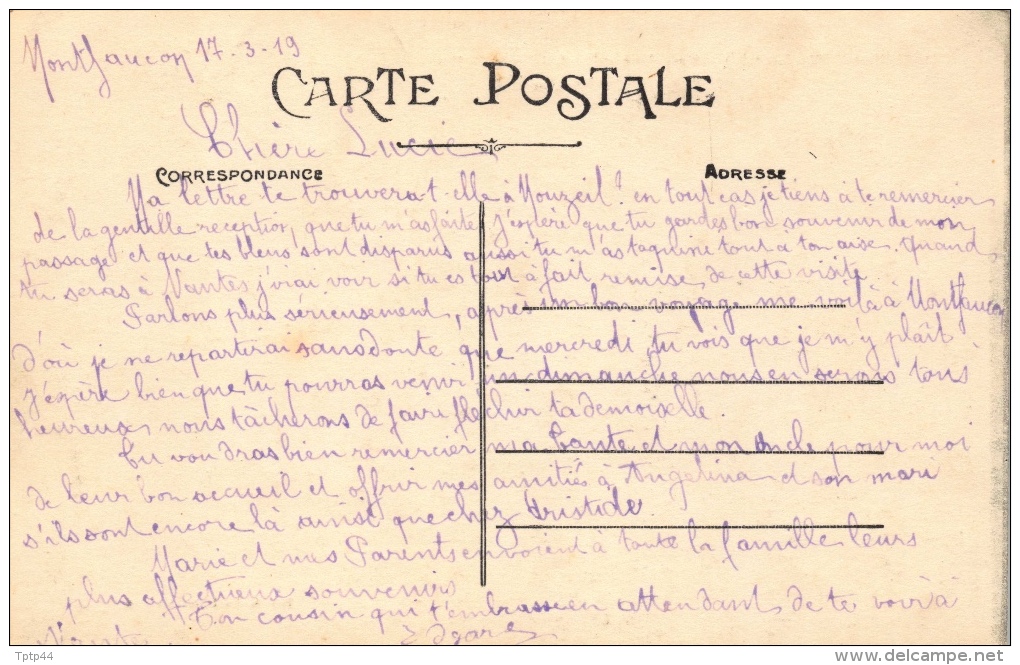 Montfaucon 17-3-19
CARTE POSTALE
Chère Lucie
CORRESPONDANCE
ADRESSE
Ma lettre te trouvera-t-elle à Mouzeil? en tout cas je tiens à te remercier
de la gentille reception, que tu m'as faite j'éspère que tu gardes bon souvenir de mon
passage et que tes bleus sont disparus aussi tu m'as taquiné tout a ton aise. Quand
tu seras à Nantes j'irai voir si tu es tout à fait remise de cette visite
Parlons plus sérieusement, après un bon voyage me voilà à Montfaucon
d'où je ne repartirai sans doute que mercredi, tu vois que je m'y plaît.
j'éspère bien que tu pourras venir un dimanche nous en serons tous
heureux, nous tâcherons de faire flechir ta demoiselle.
Tu voudras bien remercier ma tante et mon oncle pour moi
de leur bon accueil et offrir mes amitiés à Angelina et son mari
s'ils sont encore là ainsi que chez Aristide.
Marie et mes Parents envoient à toute la famille leurs
plus affectieux souvenirs
Ton cousin qui t'embrasse en attendant de te voir à
Nantes
Edgard
Tptp44
www.delcampe.net